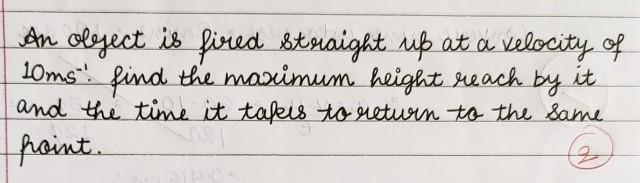 An object is fired straight up at a velocity of
10ms⁻¹. find the maximum height reach by it
and the time it takes to return to the same
point.
2